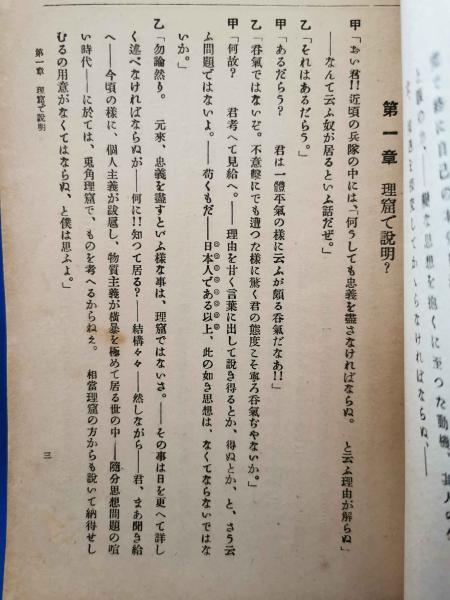 第一章 理窟で說明?
甲「おい君!!近頃の兵隊の中には、「何うしても忠義を盡さなければならぬ。 と云ふ理由が解らぬ」
――なんて云ふ奴が居るといふ話だぜ。」
乙「それはあるだらう。」
甲「あるだらう? 君は一體平氣の様に云ふが頗る呑氣だなあ!!」
乙「呑氣ではないぞ。不意擊にでも遭つた様に驚く君の態度こそ寧ろ呑氣ぢやないか。」
甲「何故? 君考へて見給へ。――理由を甘く言葉に出して說き得るとか、得ぬとか、と、さう云
ふ問題ではないよ。――苟くもだ――日本人である以上、此の如き思想は、なくてならないではな
いか。」
乙「勿論然り。 元來、忠義を盡すといふ樣な事は、理窟ではないさ。――その事は日を更へて詳し
く述べなければならぬが――何に!!知つて居る?――結構々々――然しながら――君、まあ聞き給
へ――今頃の樣に、個人主義が跋扈し、物質主義が橫暴を極めて居る世の中――隨分思想問題の喧
い時代――に於ては、兎角理窟で、ものを考へるからねえ。 相當理窟の方からも說いて納得せし
むるの用意がなくてはならぬ、と僕は思ふよ。」
第一章 理窟で說明
三